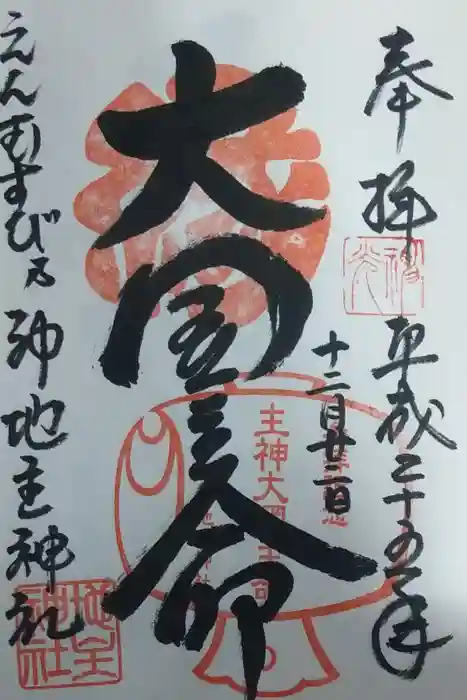 奉拝
平成二十五年
十二月廿二日
大国主命
主神大国主命
えんむすびの神地主神社
地主神社